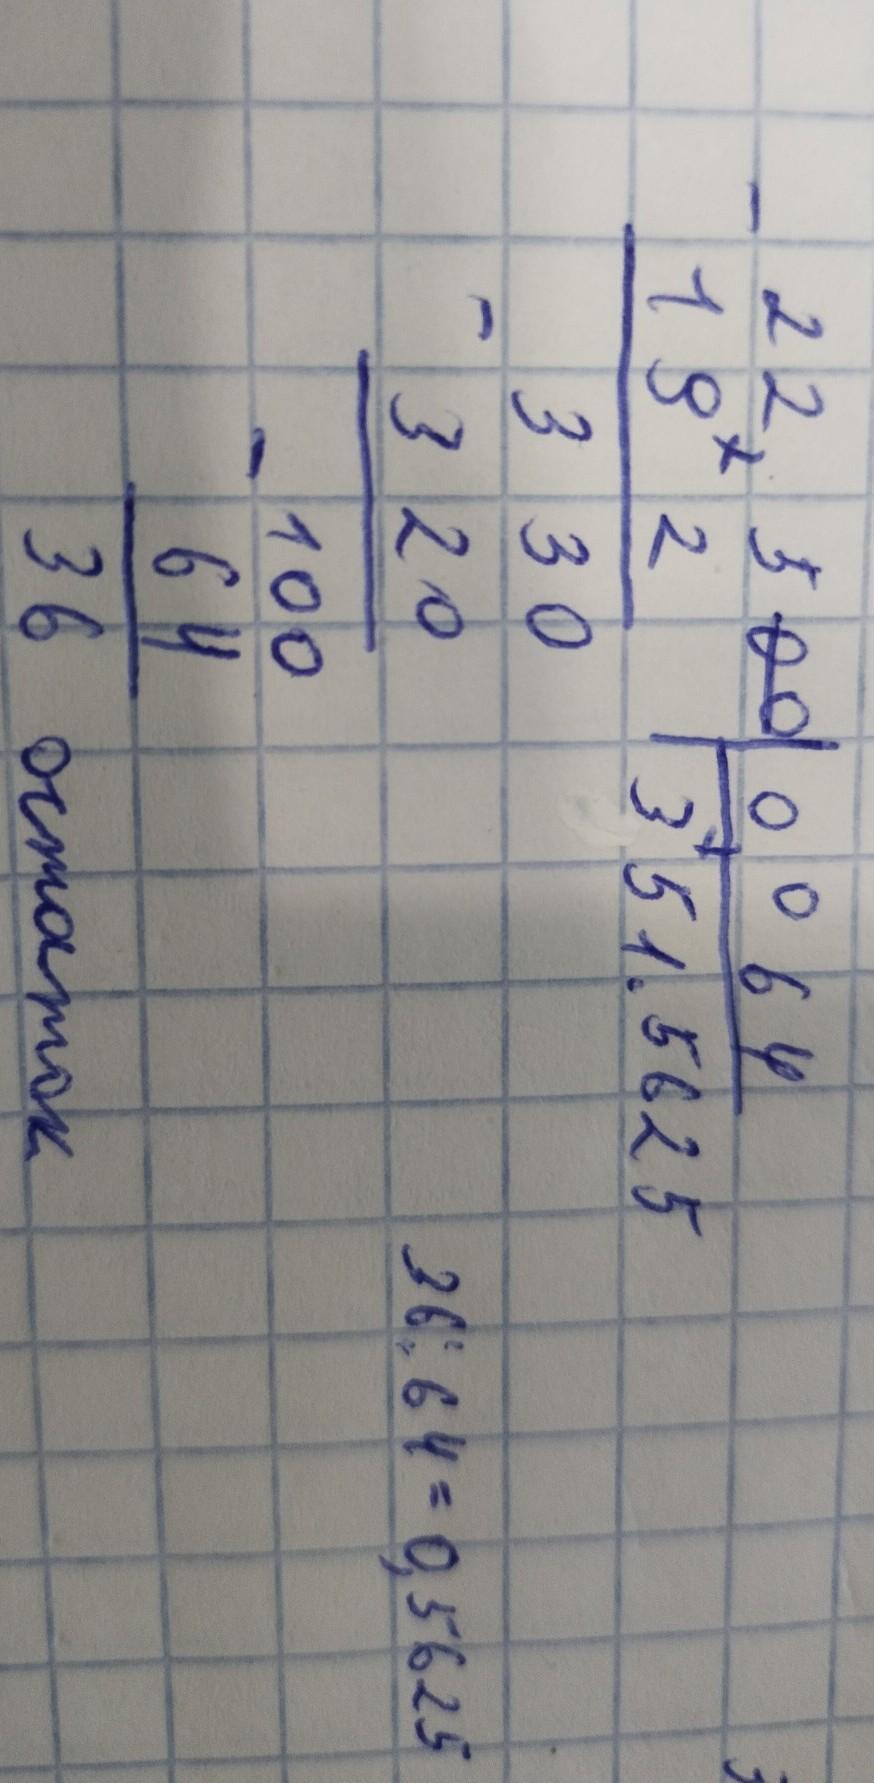 - 22,500 | 0064
192 | 3,51.5625
330
- 320
- 100
64
36 остаток
36:64=0,5625